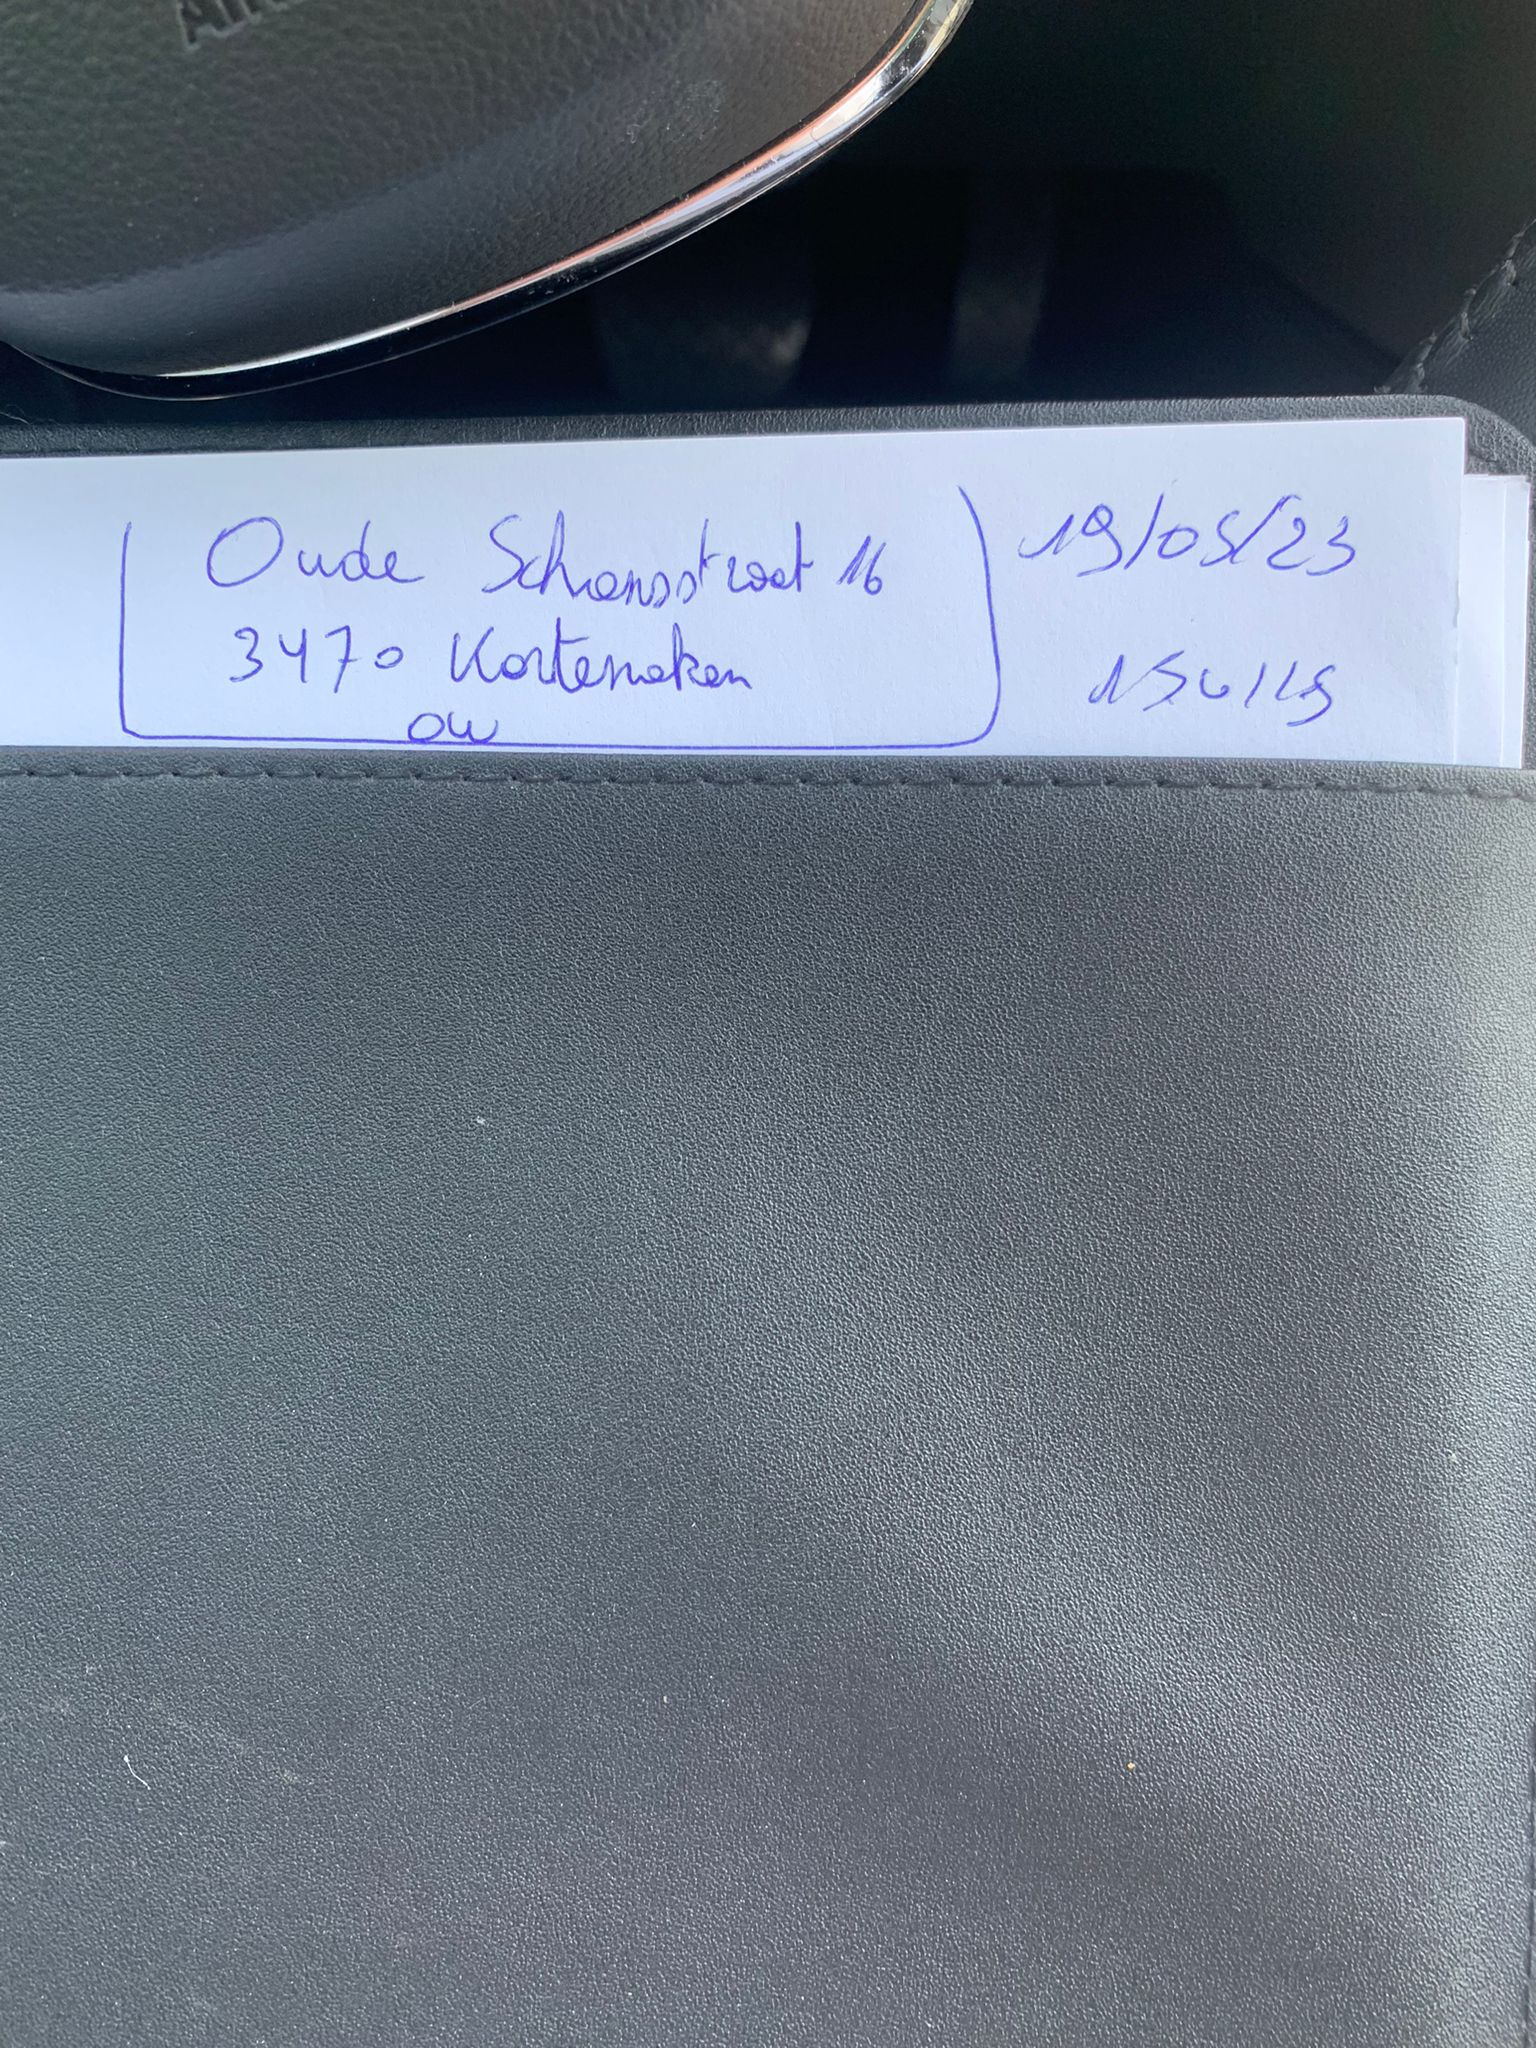 Oude Schansstraat 16
3470 Kortenaken
OW
19/05/23